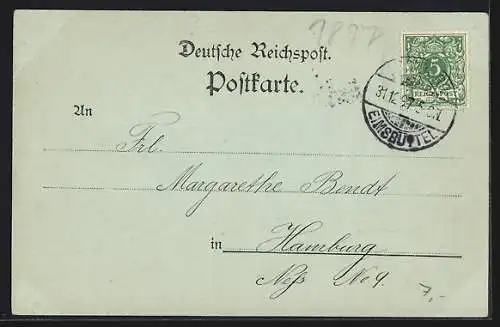 1897
Deutsche Reichspost.
Postkarte.
5
REICHSPOST
31.12.97 5-6N.
EIMSBÜTTEL
An
Frl.
Margarethe Bendt
in Hamburg
Neß No 4.
7,-